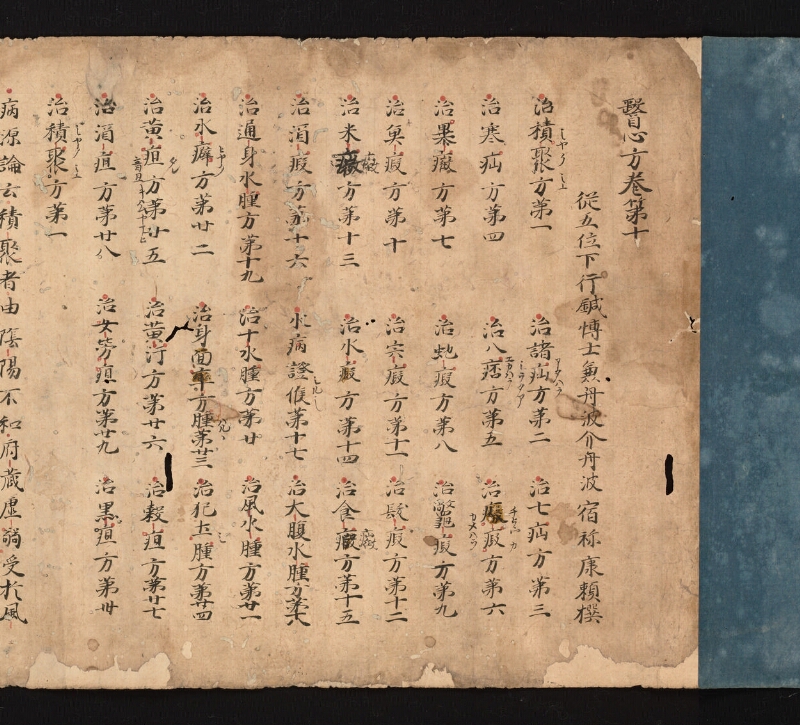 醫心方卷第十
從五位下行鍼博士兼丹波介丹波宿祢康頼撰
治積聚方第一 治諸疝方第二 治七疝方第三
治寒疝方第四 治八痞方第五 治癥瘕方第六
治暴癥方第七 治虵瘕方第八 治鼈瘕方第九
治魚瘕方第十 治宍瘕方第十一 治髮瘕方第十二
治米癥方第十三 治水瘕方第十四 治食癥方第十五
治酒瘕方第十六 水病證候第十七 治大腹水腫方第十八
治通身水腫方第十九 治十水腫方第廿 治風水腫方第廿一
治水癖方第廿二 治身面卒方腫第廿三 治犯土腫方第廿四
治黃疸方第廿五 治黃汗方第廿六 治穀疸方第廿七
治酒疸方第廿八 治女勞疸方第廿九 治黑疸方第卅
治積聚方第一
病源論云積聚者由陰陽不和府蔵虛弱受於風